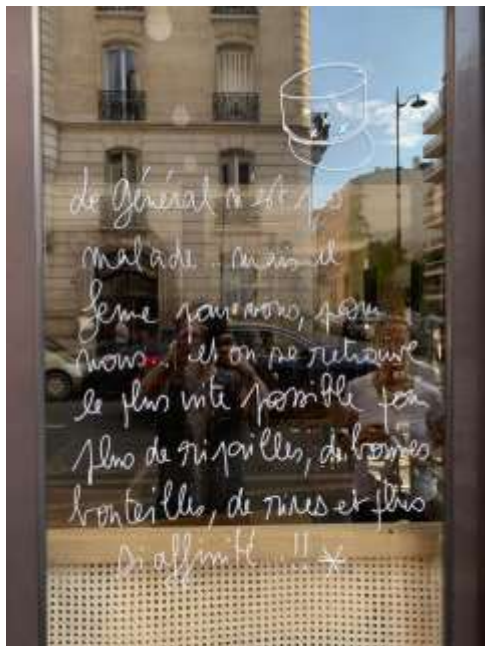 Le Général n'est pas
malade.. mais il
ferme pour vous, pour
nous.. et on se retrouve
le plus vite possible pour
plus de ripailles, de bonnes
bouteilles, de rires et plus
si affinité..!! *